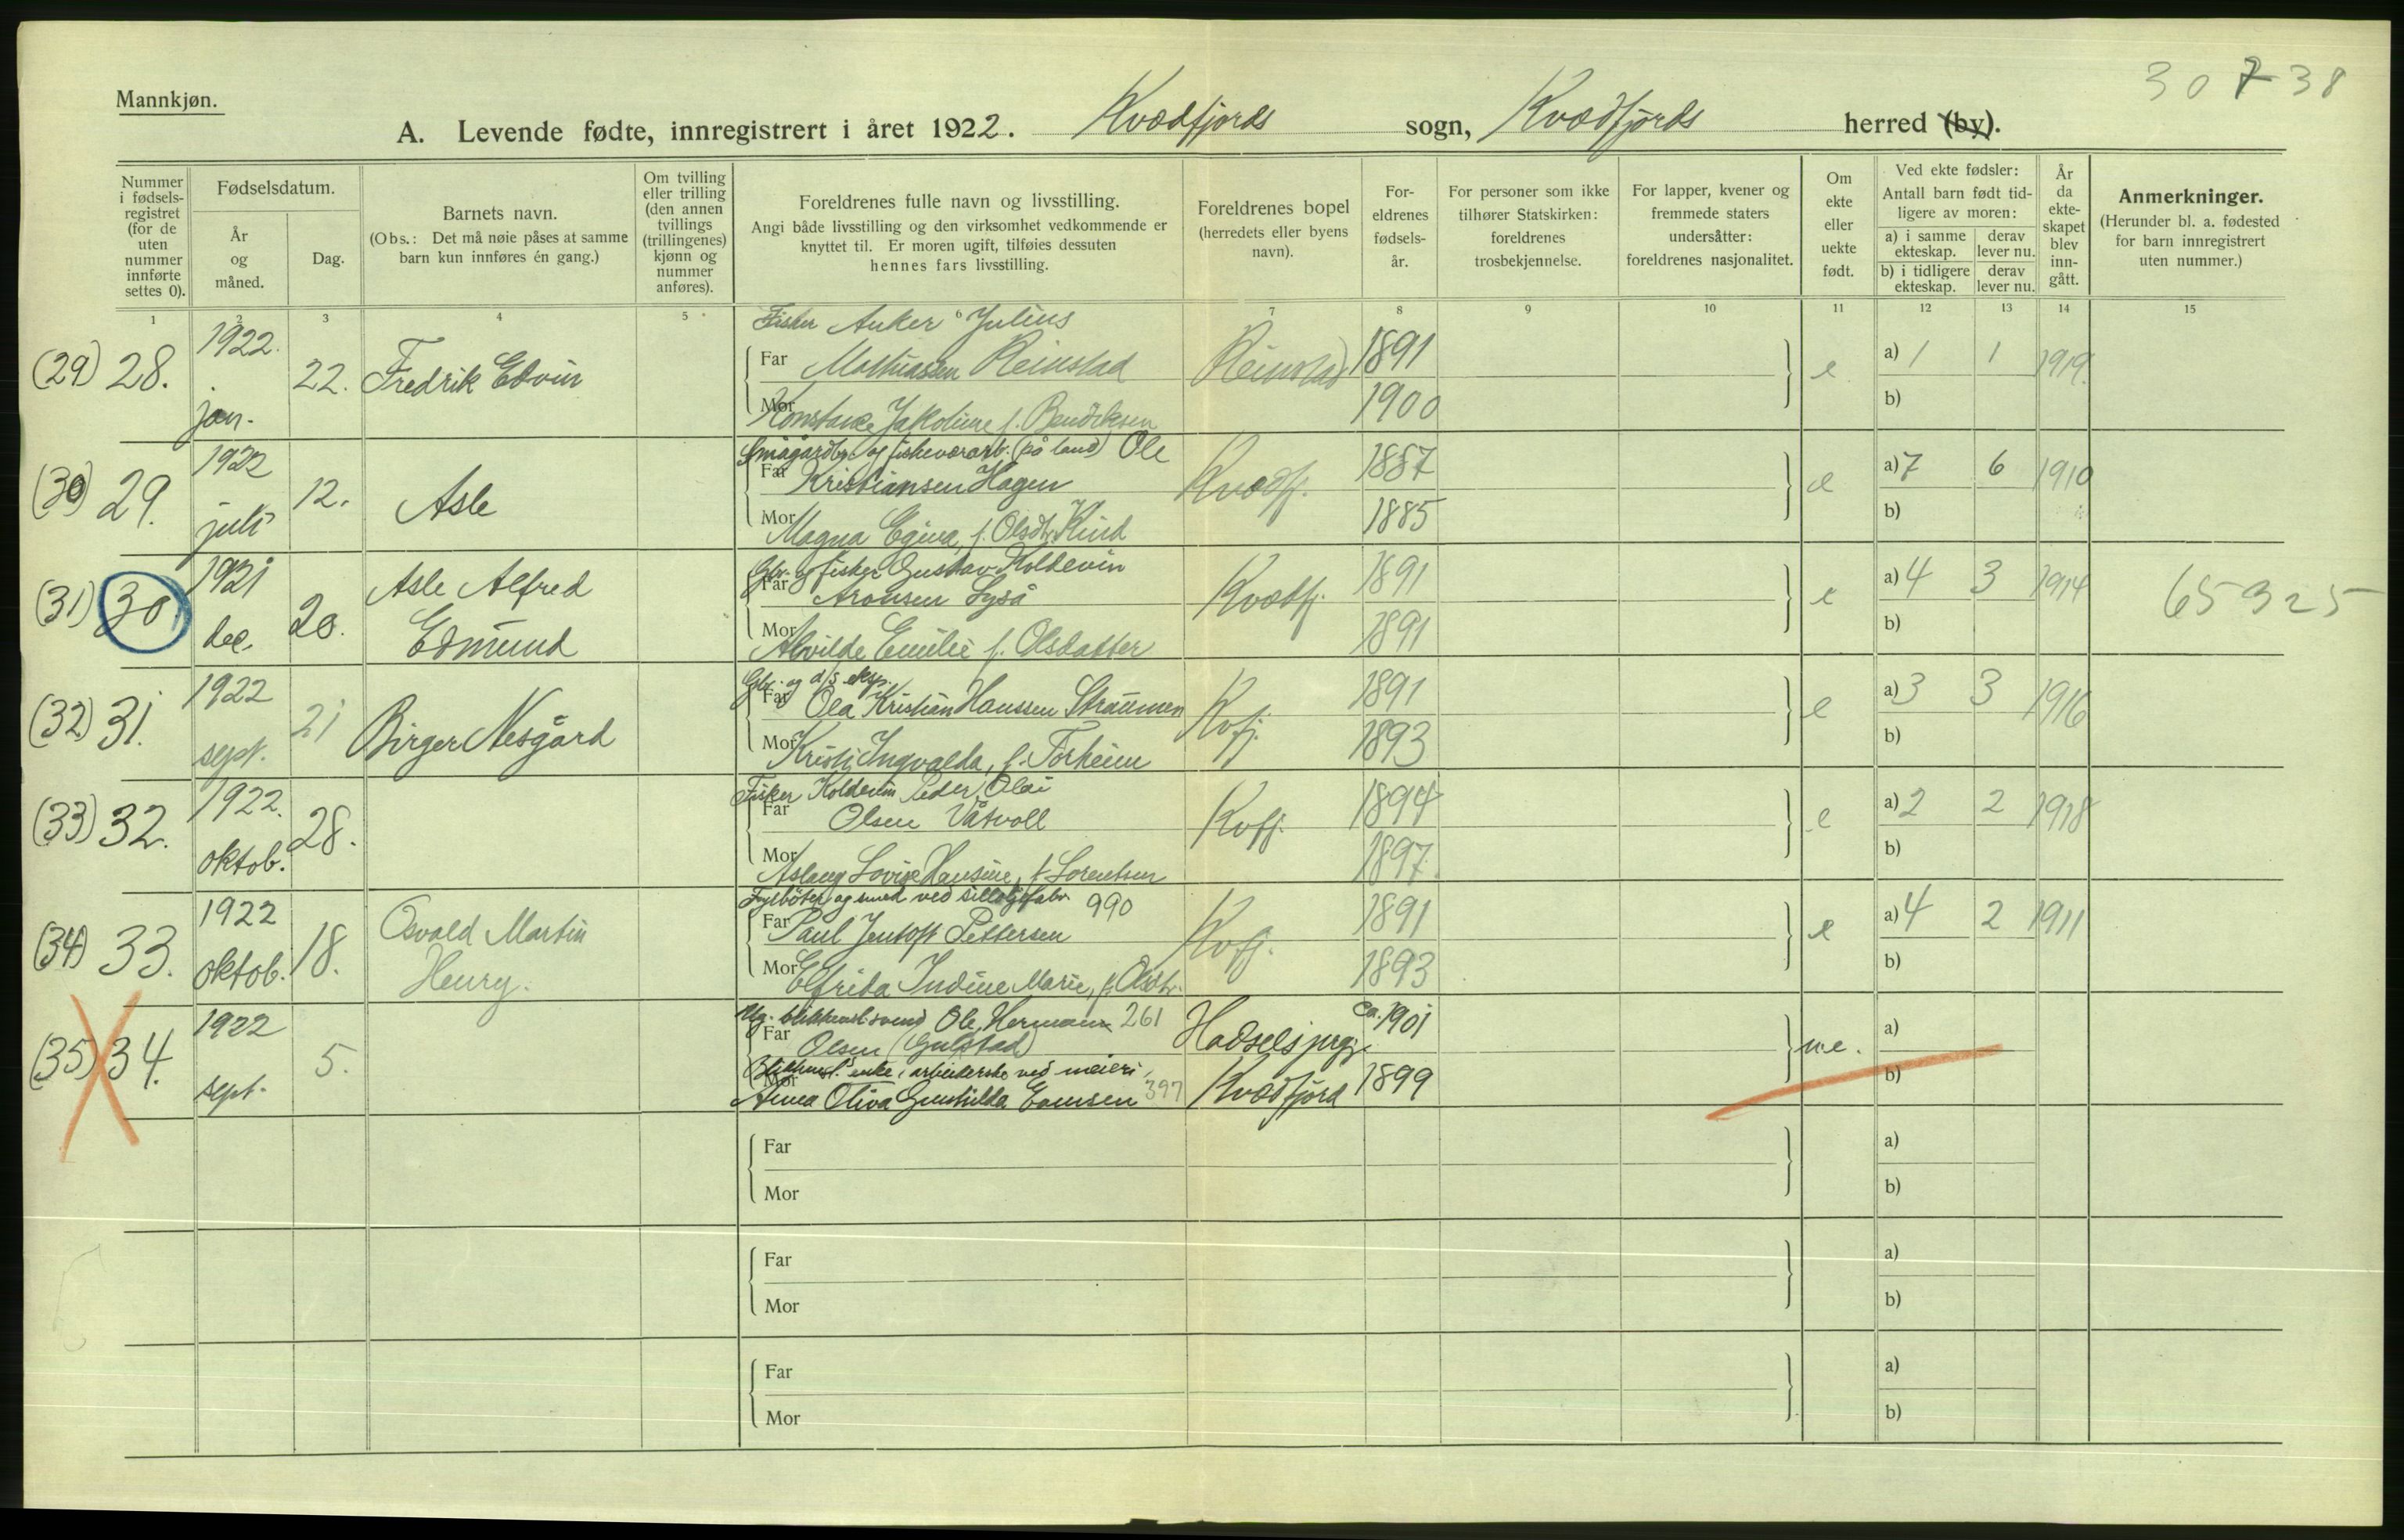 30738
Mannkjøn.
A. Levende fødte, innregistrert i året 1922. Kvædfjords sogn, Kvædfjords herred (by).
Nummer i fødsels-registret (for de uten nummer innførte settes 0).
Fødselsdatum.
År og måned.
Dag.
Barnets navn.
(Obs.: Det må nøie påses at samme barn kun innføres én gang.)
Om tvilling eller trilling (den annen tvillings (trillingenes) kjønn og nummer anføres).
Foreldrenes fulle navn og livsstilling.
Angi både livsstilling og den virksomhet vedkommende er knyttet til. Er moren ugift, tilføies dessuten hennes fars livsstilling.
Foreldrenes bopel (herredets eller byens navn).
For-eldrenes fødsels-år.
For personer som ikke tilhører Statskirken: foreldrenes trosbekjennelse.
For lapper, kvener og fremmede staters undersåtter: foreldrenes nasjonalitet.
Om ekte eller uekte født.
Ved ekte fødsler:
Antall barn født tid-ligere av moren:
a) i samme ekteskap.
derav lever nu.
b) i tidligere ekteskap.
derav lever nu.
År da ekte-skapet blev inn-gått.
Anmerkninger.
(Herunder bl. a. fødested for barn innregistrert uten nummer.)
1 2 3 4 5 6 7 8 9 10 11 12 13 14 15
(29) 28. 1922. jan. 22. Fredrik Edvin
Fisker Anker Julius
Far Mathiassen Reinstad Reinstad 1891
Mor Konstance Jakobine f. Bendiksen 1900
e a) 1 1 1919.
b)
(30) 29. 1922 juli 12. Asle
Smågårdbr. og fiskevararb. (på land) Ole
Far Kristiansen Hagen Kvædfj. 1887
Mor Magna Egina, f. Olsdtr. Kind 1885
e a) 7 6 1910
b)
(31) 30. 1921 dec. 20. Asle Alfred
Edmund
Gbr. og fisker Gustav Koldevin
Far Aronsen Lyså Kvædfj. 1891
Mor Alvilde Emilie f. Olsdatter 1891
e a) 4 3 1914 65325
b)
(32) 31. 1922 sept. 21 Birger Nesgård
Gbr. og d/s eksp.
Far Ola Kristian Hanssen Straumen Kvfj. 1891
Mor Kristi Ingvalda, f. Forheim 1893
e a) 3 3 1916
b)
(33) 32. 1922. oktob. 28.
Fisker Koldevin Peder Olai
Far Olsen Våtvoll Kvfj. 1894
Mor Aslaug Lovise Hansine, f. Lorentsen 1897.
e a) 2 2 1918
b)
(34) 33. 1922 oktob. 18. Osvald Martin
Henry.
Fyrbøter og smed ved sildoljefabr. 990
Far Paul Jentoft Pettersen Kvfj. 1891
Mor Elfrida Indine Marie, f. Olsdtr. 1893
e a) 4 2 1911
b)
(35) 34. 1922 sept. 5.
Ug. blikkensl.svend Ole Herman 261
Far Olsen (Gulstad) Hadsel ca. 1901
Blikkensl. enke, arbeiderske ved meieri,
Mor Anna Oliva Gunhilda 397 Kvædfjord 1899
u.e. a)
b)
Far
Mor
a)
b)
Far
Mor
a)
b)
Far
Mor
a)
b)